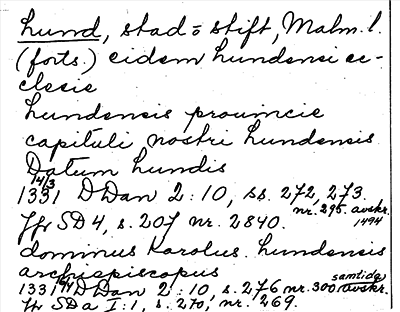 Lund, stad o stift, Malm. l.
(forts.) eidem Lundensi ec-
clesie
Lundensis prouincie
capituli nostri Lundensis
Datum Lundis
14/3
1331 DDan 2:10, ss. 272, 273.
nr. 295. avskr.
1494
Jfr SD 4, s. 207 nr. 2840.
dominus Karolus. Lundensis
archiepiscopus
samtida
1331 DDan 2:10 s. 276 nr. 300 avskr.
Jfr SDa I:1, s. 270, nr. 269.